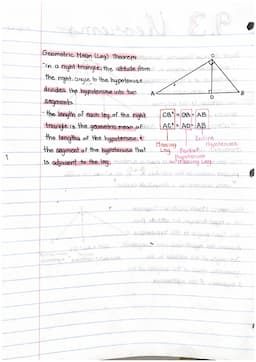 Geometric Mean (Leg) Theorem
- In a right triangle, the altitude from
the right angle to the hypotenuse
divides the hypotenuse into two
segments.
- the length of each leg of the right
triangle is the geometric mean of
the lengths of the hypotenuse &
the segment of the hypotenuse that
is adjacent to the leg.
C
A
B
D
CB² = DB · AB
AC² = AD · AB
Missing Leg
Partial Hypotenuse
w/ Missing Leg
Entire Hypotenuse